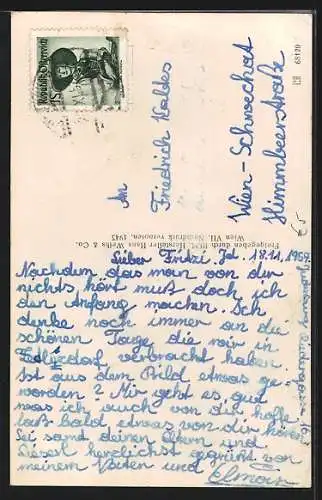 Republik Österreich
An
Friedrich Waldes
Wien-Schwechat
Himmbeerstraße
68120
€5
Freigegeben durch ISB, Hersteller Hans Weiss & Co.,
Wien VII, Nachdruck verboten, 1945
Lieber Fridri, Jd. 18.11.1959.
Nachdem das man von dir
nichts hört muß doch ich
den Anfang machen. Ich
denke noch immer an die
schönen Tage die wir in
Edligdorf verbracht haben.
Ist aus dem Bild etwas ge-
worden? Mir geht es gut
was ich auch von dir hoffe
laß bald etwas von dir hören
Sei samt deinen Eltern und
Diesel herzlichst gegrüßt von
meinem Beten und Elmar